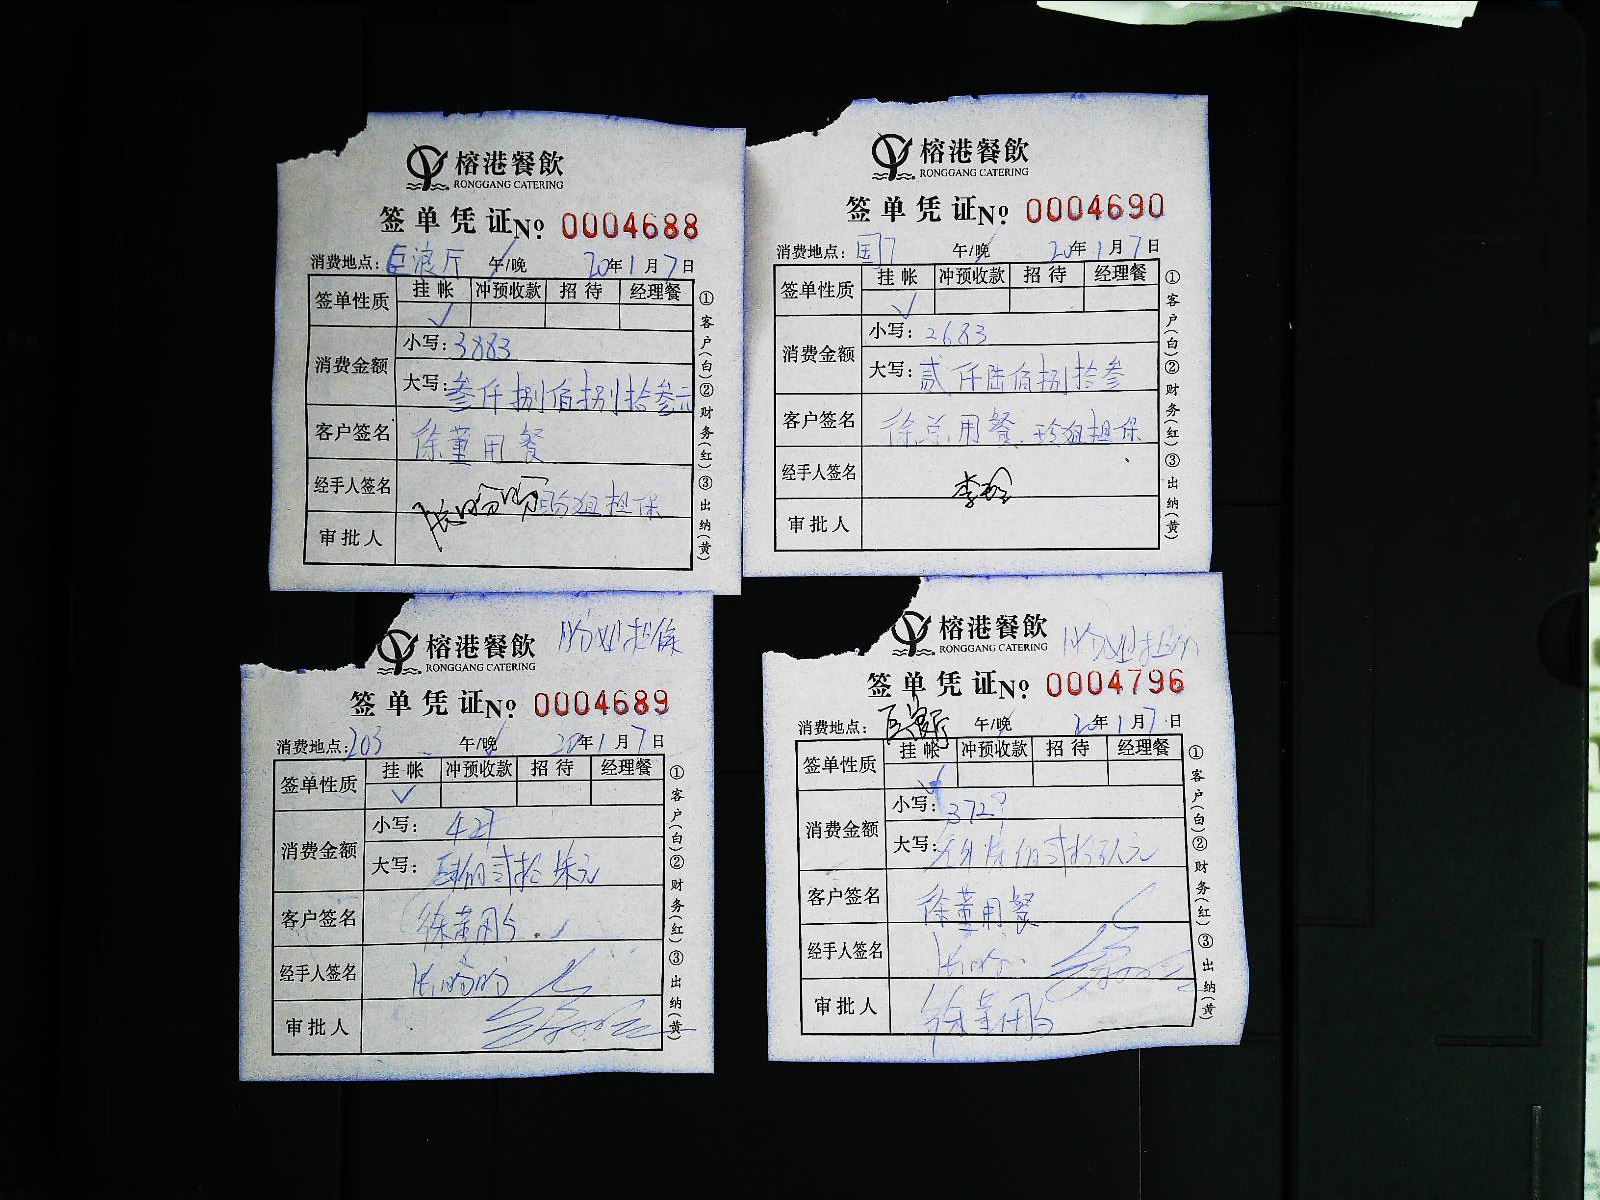 榕港餐飲
RONGGANG CATERING
签单凭证 No 0004688
消费地点：巨浪厅 午/晚 20年1月7日
签单性质 挂帐 冲预收款 招待 经理餐
✓
消费金额 小写：3883
大写：叁仟捌佰捌拾叁元
客户签名 徐董用餐
经手人签名 担保
审批人
①客户(白)②财务(红)③出纳(黄)
榕港餐飲
RONGGANG CATERING
签单凭证 No 0004690
消费地点： 午/晚 20年1月7日
签单性质 挂帐 冲预收款 招待 经理餐
✓
消费金额 小写：2683
大写：贰仟陆佰捌拾叁
客户签名 徐总用餐.玲姐担保
经手人签名
审批人
①客户(白)②财务(红)③出纳(黄)
担保
榕港餐飲
RONGGANG CATERING
签单凭证 No 0004689
消费地点：203 午/晚 20年1月7日
签单性质 挂帐 冲预收款 招待 经理餐
✓
消费金额 小写：427
大写：肆佰贰拾柒元
客户签名 徐董
经手人签名
审批人
①客户(白)②财务(红)③出纳(黄)
榕港餐飲
RONGGANG CATERING
签单凭证 No 0004796
消费地点： 午/晚 20年1月7日
签单性质 挂帐 冲预收款 招待 经理餐
消费金额 小写：
大写：
客户签名 徐董用餐
经手人签名
审批人 徐董
①客户(白)②财务(红)③出纳(黄)